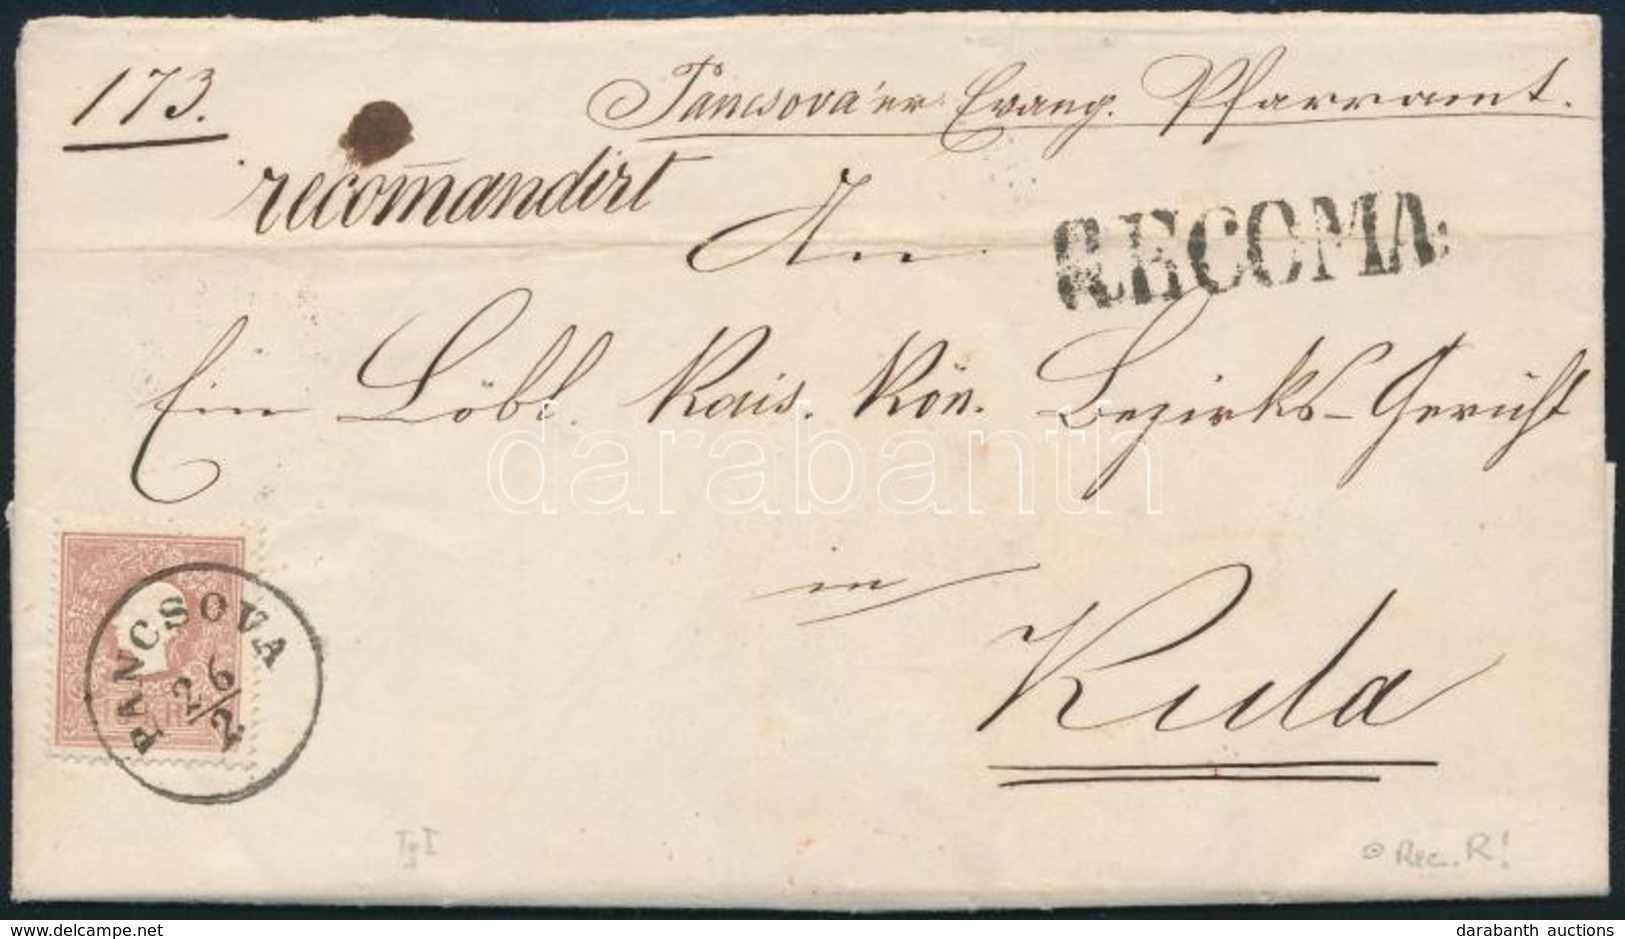 173.
Pancsova'er Evang. Pfarramt.
recom̄andirt
An
RECOMA:
Ein Löbl. Kais. Kön. Bezirks-Gericht
darabanth
in
Kula
PANCSOVA
26/2
Rec. R!
delcampe.net
darabanth auctions